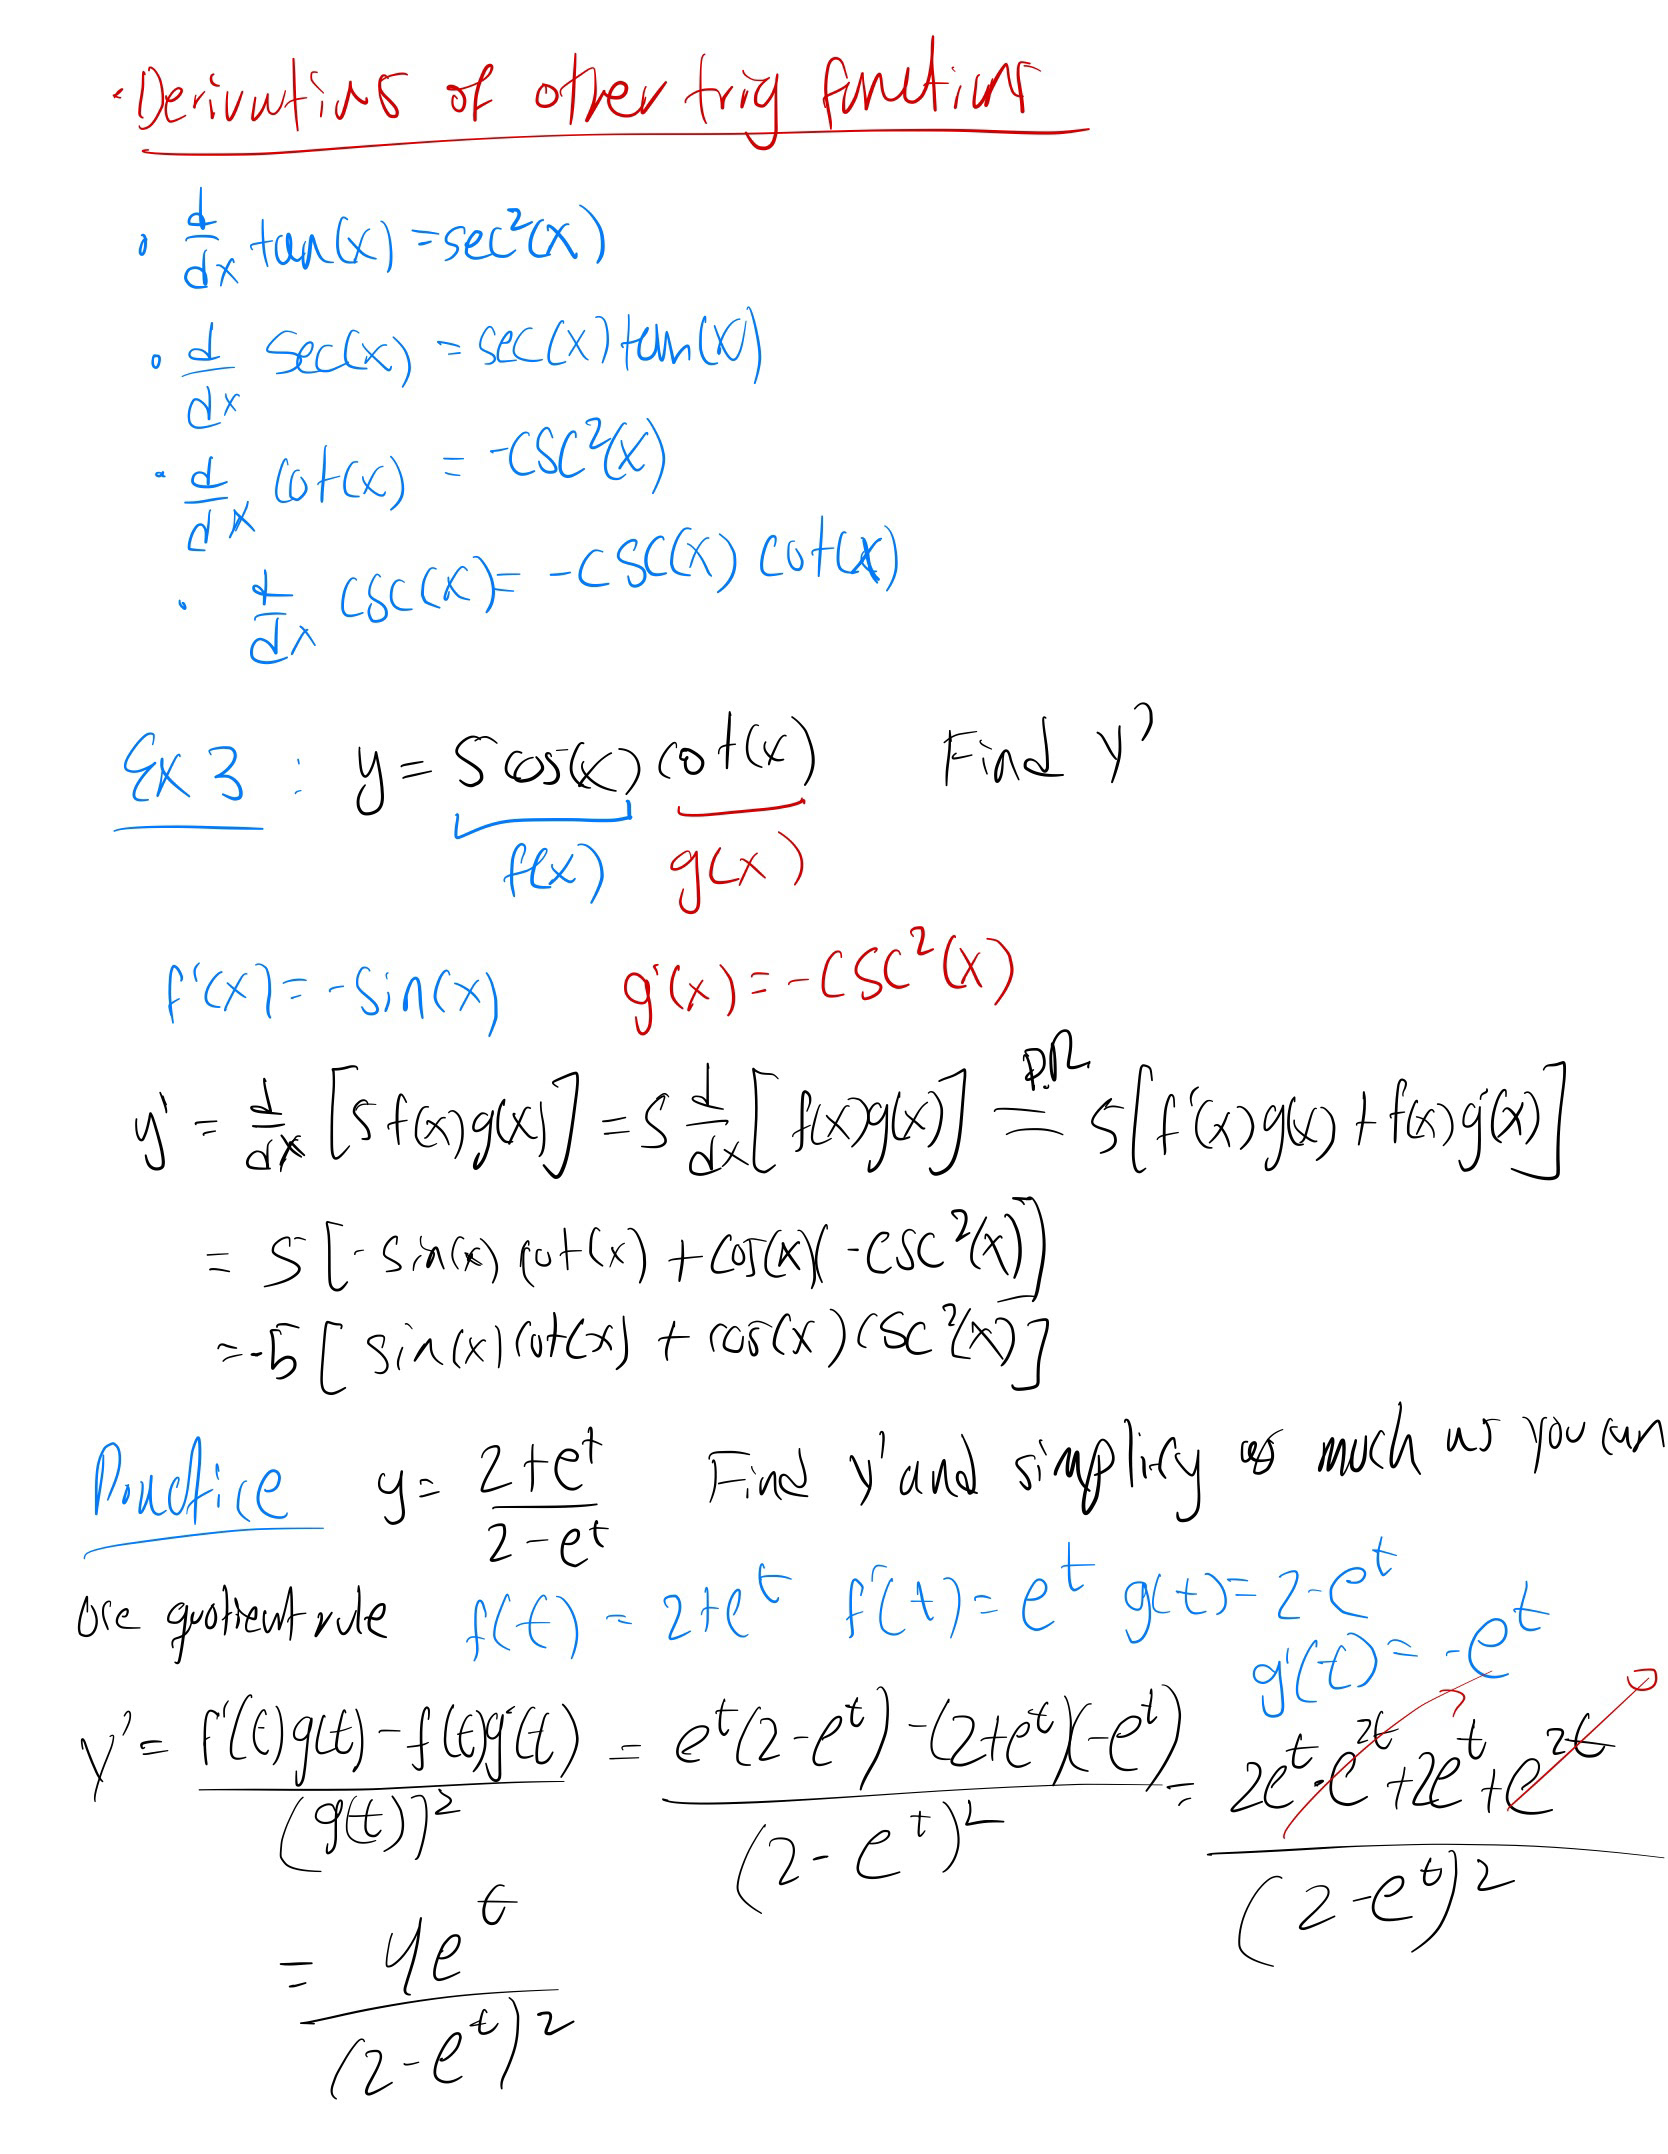 · Derivatives of other trig functions
· d/dx tan(x) = sec²(x)
· d/dx sec(x) = sec(x) tan(x)
· d/dx cot(x) = -csc²(x)
· d/dx csc(x) = -csc(x) cot(x)
Ex 3 : y = 5 cos(x) cot(x) Find y'
f(x) g(x)
f'(x) = -sin(x) g'(x) = -csc²(x)
y' = d/dx [5 f(x)g(x)] = 5 d/dx [f(x)g(x)] =^{P.R} 5[f'(x)g(x) + f(x)g'(x)]
= 5 [-sin(x) cot(x) + cos(x)(-csc²(x))]
= -5 [sin(x) cot(x) + cos(x) csc²(x)]
Practice y = (2+e^t)/(2-e^t) Find y' and simplify as much as you can
Use quotient rule f(t) = 2+e^t f'(t) = e^t g(t) = 2-e^t
g'(t) = -e^t
y' = (f'(t)g(t) - f(t)g'(t))/(g(t))² = (e^t(2-e^t) - (2+e^t)(-e^t))/(2-e^t)² = (2e^t - e^{2t} + 2e^t + e^{2t})/(2-e^t)²
= 4e^t/(2-e^t)²